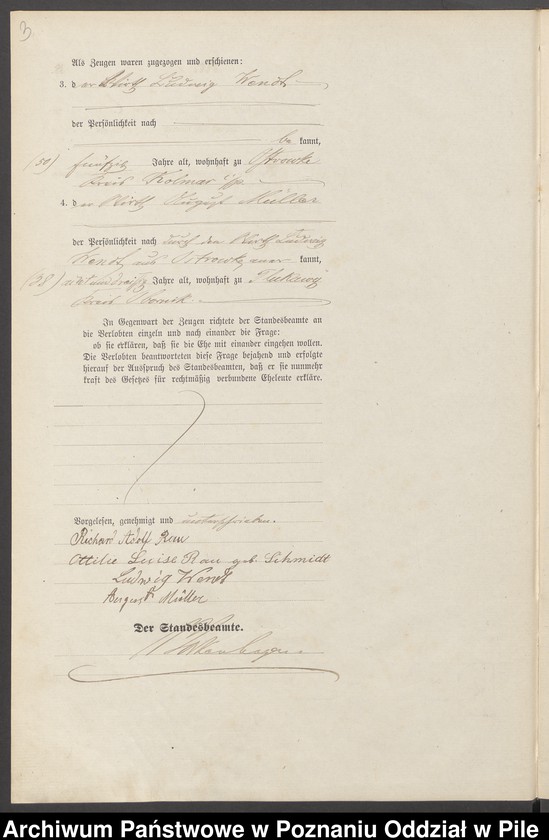 3
Als Zeugen waren zugezogen und erschienen:
3. der Wirth Ludwig Wendt
der Persönlichkeit nach
be kannt,
(50) fünfzig Jahre alt, wohnhaft zu Ostrowke
Kreis Kolmar i/p.
4. der Wirth August Müller
der Persönlichkeit nach durch den Wirth Ludwig
Wendt aus Ostrowke aner kannt,
(38) achtunddreißig Jahre alt, wohnhaft zu
Kreis Obornik
In Gegenwart der Zeugen richtete der Standesbeamte an
die Verlobten einzeln und nach einander die Frage:
ob sie erklären, daß sie die Ehe mit einander eingehen wollen.
Die Verlobten beantworteten diese Frage bejahend und erfolgte
hierauf der Ausspruch des Standesbeamten, daß er sie nunmehr
kraft des Gesetzes für rechtmäßig verbundene Eheleute erkläre.
Vorgelesen, genehmigt und unterschrieben.
Richard Adolf Rau
Ottilie Luise Rau geb. Schmidt
Ludwig Wendt
August Müller
Der Standesbeamte.
Archiwum Państwowe w Poznaniu Oddział w Pile